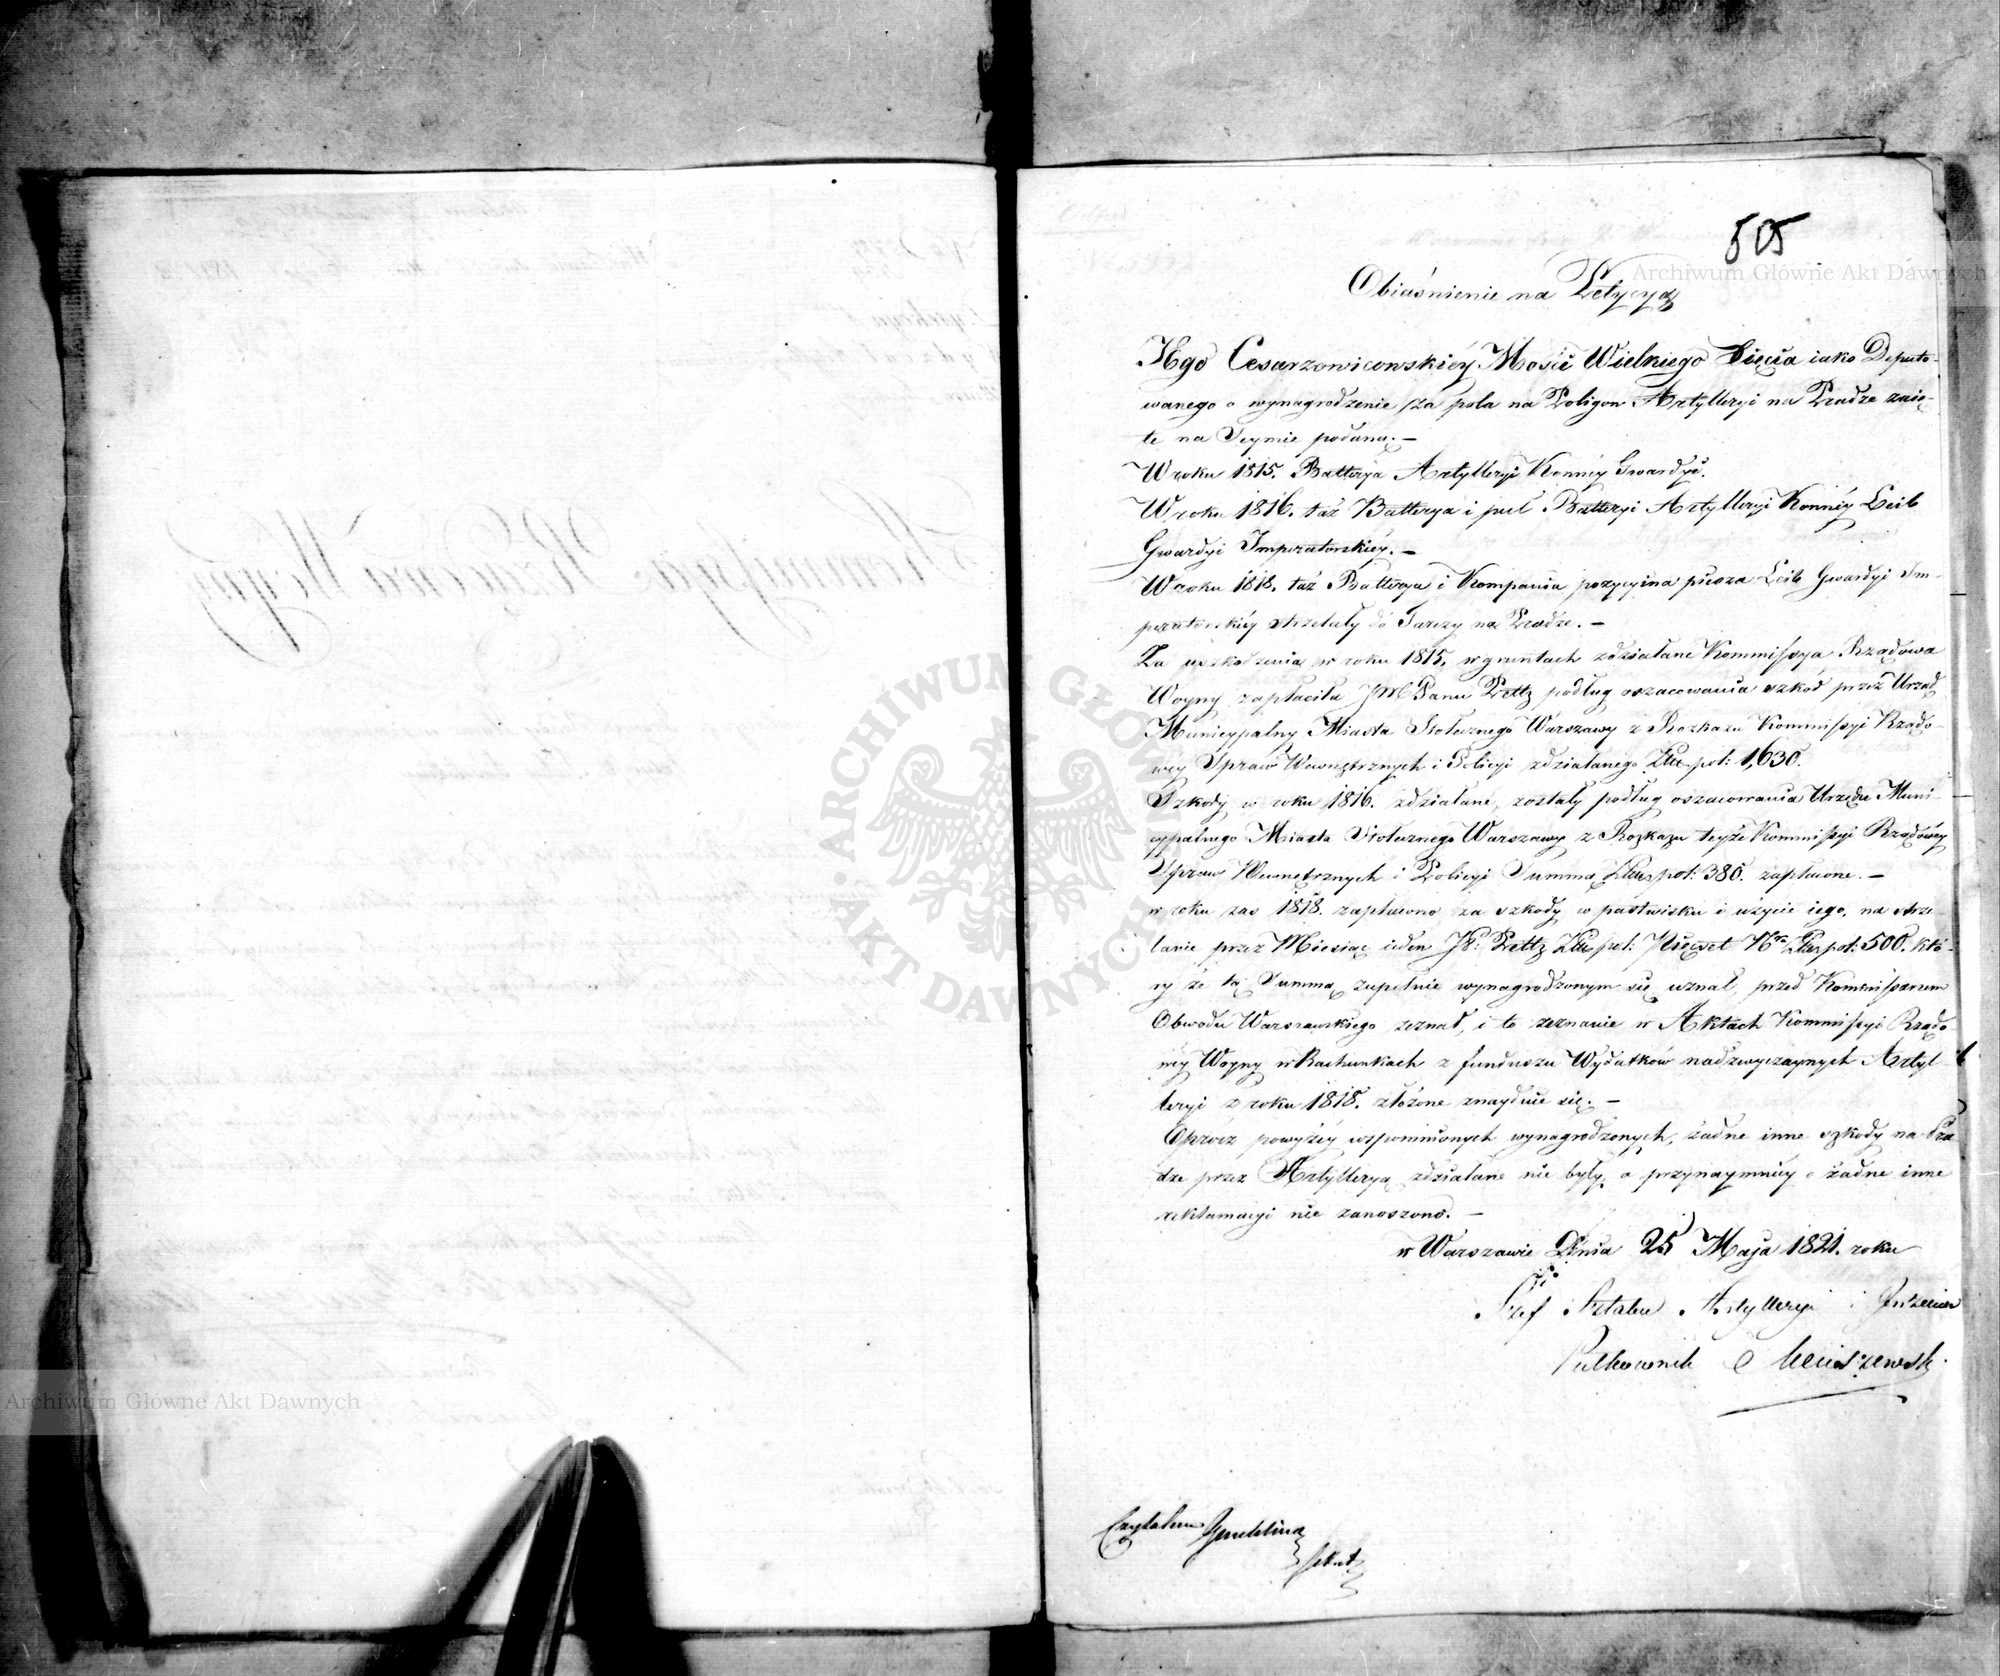 505
Obiaśnienie na Petycyą
Jego Cesarzowicowskiéy Mości Wielkiego Xięcia iako Deputo-
wanego o wynagrodzenie za pola na Poligon Artylleryi na Pradze zaię-
te na Seymie podaną. —
W roku 1815. Batterya Artylleryi Konnéy Gwardyi.
W roku 1816. taż Batterya i puł Batteryi Artylleryi Konnéy Leib
Gwardyi Imperatorskiéy. —
W roku 1818. taż Batterya i Kompania pozycyina piesza Leib Gwardyi Im-
peratorskiéy strzelały do Tarczy na Pradze. —
Za uszkodzenia w roku 1815, w gruntach zdziałane Kommissya Rządowa
Woyny zapłaciła JMPanu Pettz podług oszacowania szkód przez Urząd
Municypalny Miasta Stołecznego Warszawy z Rozkazu Kommissyi Rządo-
wéy Spraw Wewnętrznych i Policyi zdziałanego Złłt. pol: 1,630.
Szkody w roku 1816. zdziałane, zostały podług oszacowania Urzędu Muni-
cypalnego Miasta Stołecznego Warszawy z Rozkazu teyże Kommissyi Rządowéy
Spraw Wewnętrznych i Policyi Summą Złłt. pol: 380. zapłacone. —
w roku zaś 1818. zapłacono za szkody w pastwisku i użycie iego, na strze-
lanie przez Miesiąc ieden JP: Pettz Złłt. pol: Pięćset Nro Złłt. pol: 500. któ-
ry że tą Summą zupełnie wynagrodzonym się uznał, przed Kommissarzem
Obwodu Warszawskiego zeznał, i to zeznanie w Aktach Kommissyi Rządo
wéy Woyny w Rachunkach z funduszu Wydatków nadzwyczaynych Artyl-
leryi z roku 1818. złożone znayduie się. —
Oprócz powyżéy wspomnionych wynagrodzonych, żadne inne szkody na Pra
dze przez Artylleryą zdziałane nie były, a przynaymniéy o żadne inne
reklamacyi nie zanoszono. —
w Warszawie Dnia 25 Maja 1821. roku
Szef Sztabu Artylleryi i Inżenier
Pułkownik
Czytałem
Archiwum Główne Akt Dawnych
Archiwum Główne Akt Dawnych
· ARCHIWUM GŁÓWNE · AKT DAWNYCH